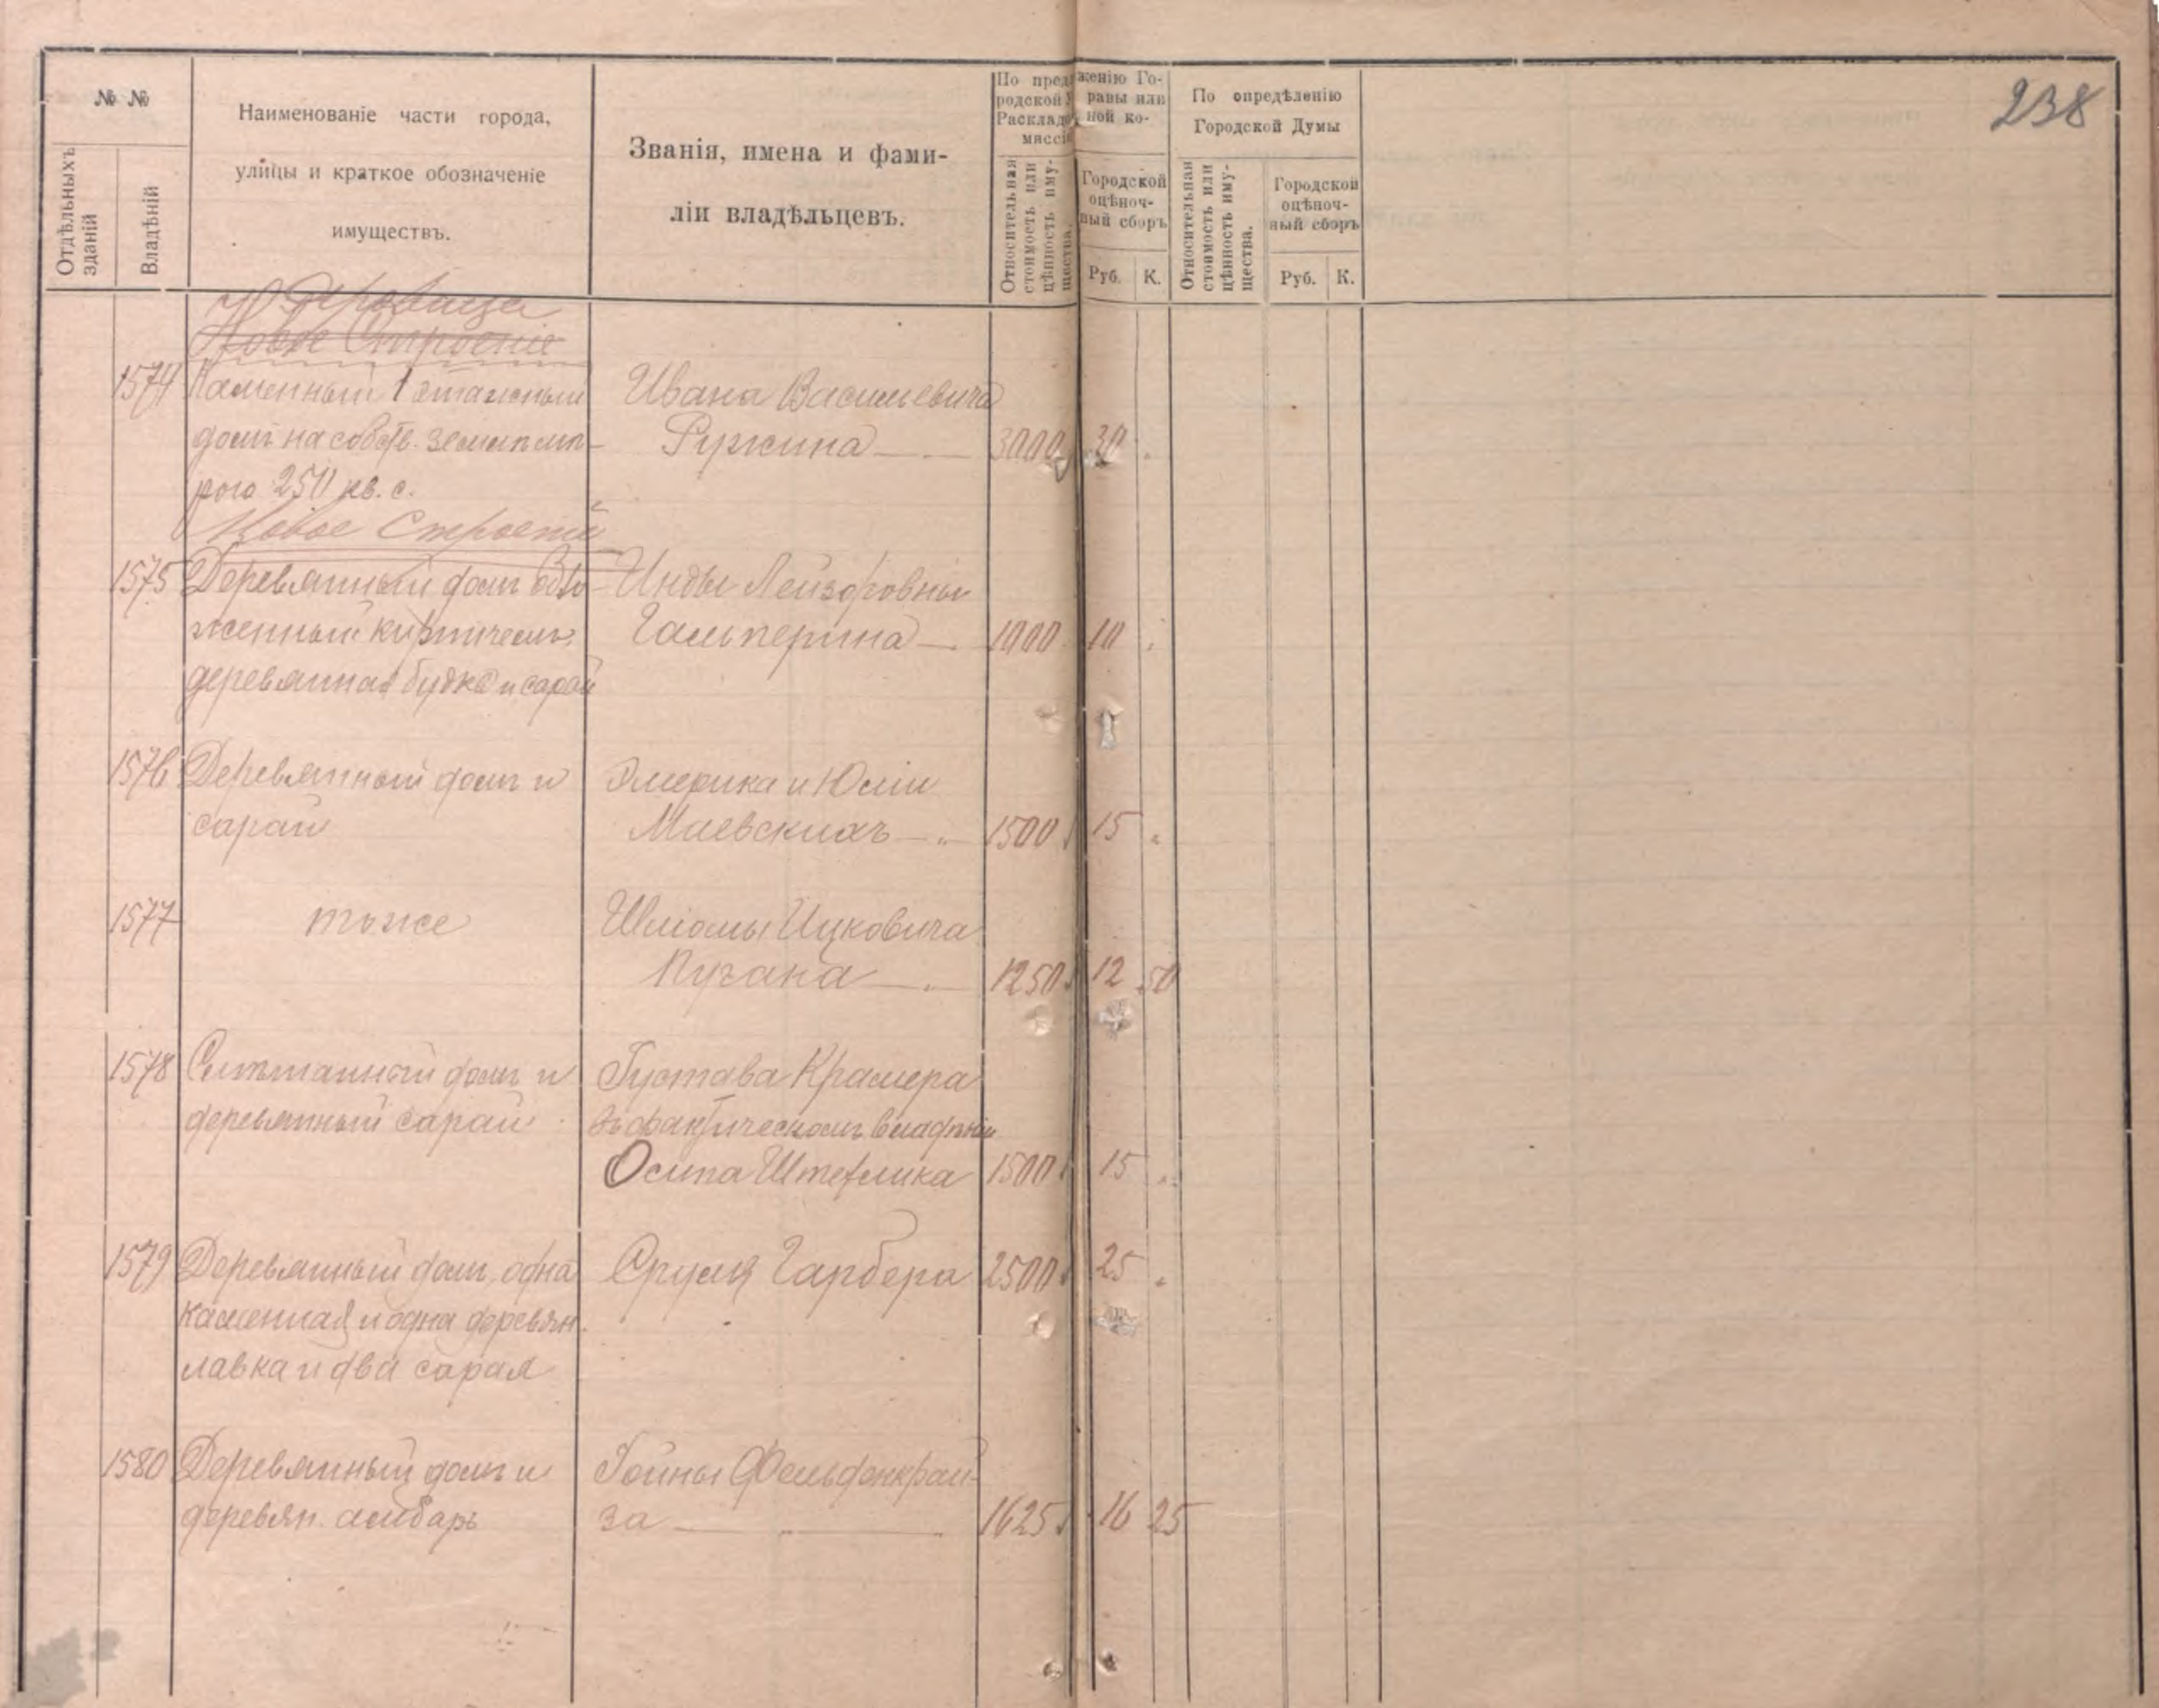 238
№ №
Отдѣльныхъ зданій
Владѣній
Наименованіе части города,
улицы и краткое обозначеніе
имуществъ.
Званія, имена и фами-
ліи владѣльцевъ.
Относительная стоимость или цѣнность иму- щества.
Городской
оцѣноч-
ный сборъ
Руб. К.
По опредѣленію
Городской Думы
Относительная стоимость или цѣнность иму- щества.
Городской
оцѣноч-
ный сборъ
Руб. К.
Новое Строеніе
1574 Каменный 1 этажный Ивана Васильевича
домъ на собств. земл мѣ- Ружина 3000 30 "
рою 250 кв. с.
Новое Строеніе
1575 Деревянный домъ обло- Инды Лейзоровны
женный кирпичемъ, Гальперина 1000 10 "
деревянная будка и сарай
1576 Деревянный домъ и Эмерика и Юліи
сарай Маевскихъ 1500 15 "
1577 тоже Шліомы Ицковича
1250 12 50
1578 домъ и Густава Крамера
деревянный сарай въ фактическомъ владѣніи
Осипа Штефлика 1500 15 "
1579 Деревянный домъ, одна Сруля Гарбера 2500 25 "
каменная и одна деревян.
лавка и два сарая
1580 Деревянный домъ и Гойны Фельденкрай-
деревян. амбаръ за 1625 16 25